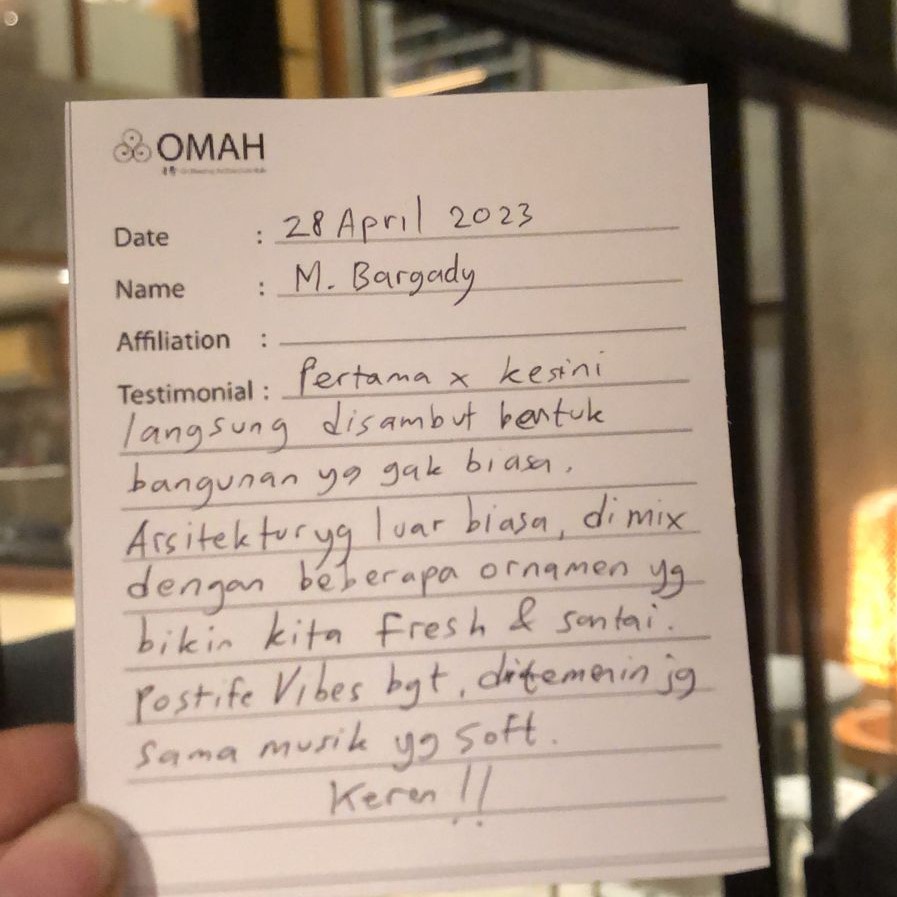 OMAH
Date : 28 April 2023
Name : M. Bargady
Affiliation :
Testimonial : Pertama x kesini
langsung disambut bentuk
bangunan yg gak biasa.
Arsitektur yg luar biasa, dimix
dengan beberapa ornamen yg
bikin kita fresh & santai.
Postife Vibes bgt, ditemenin jg
sama musik yg soft.
Keren !!